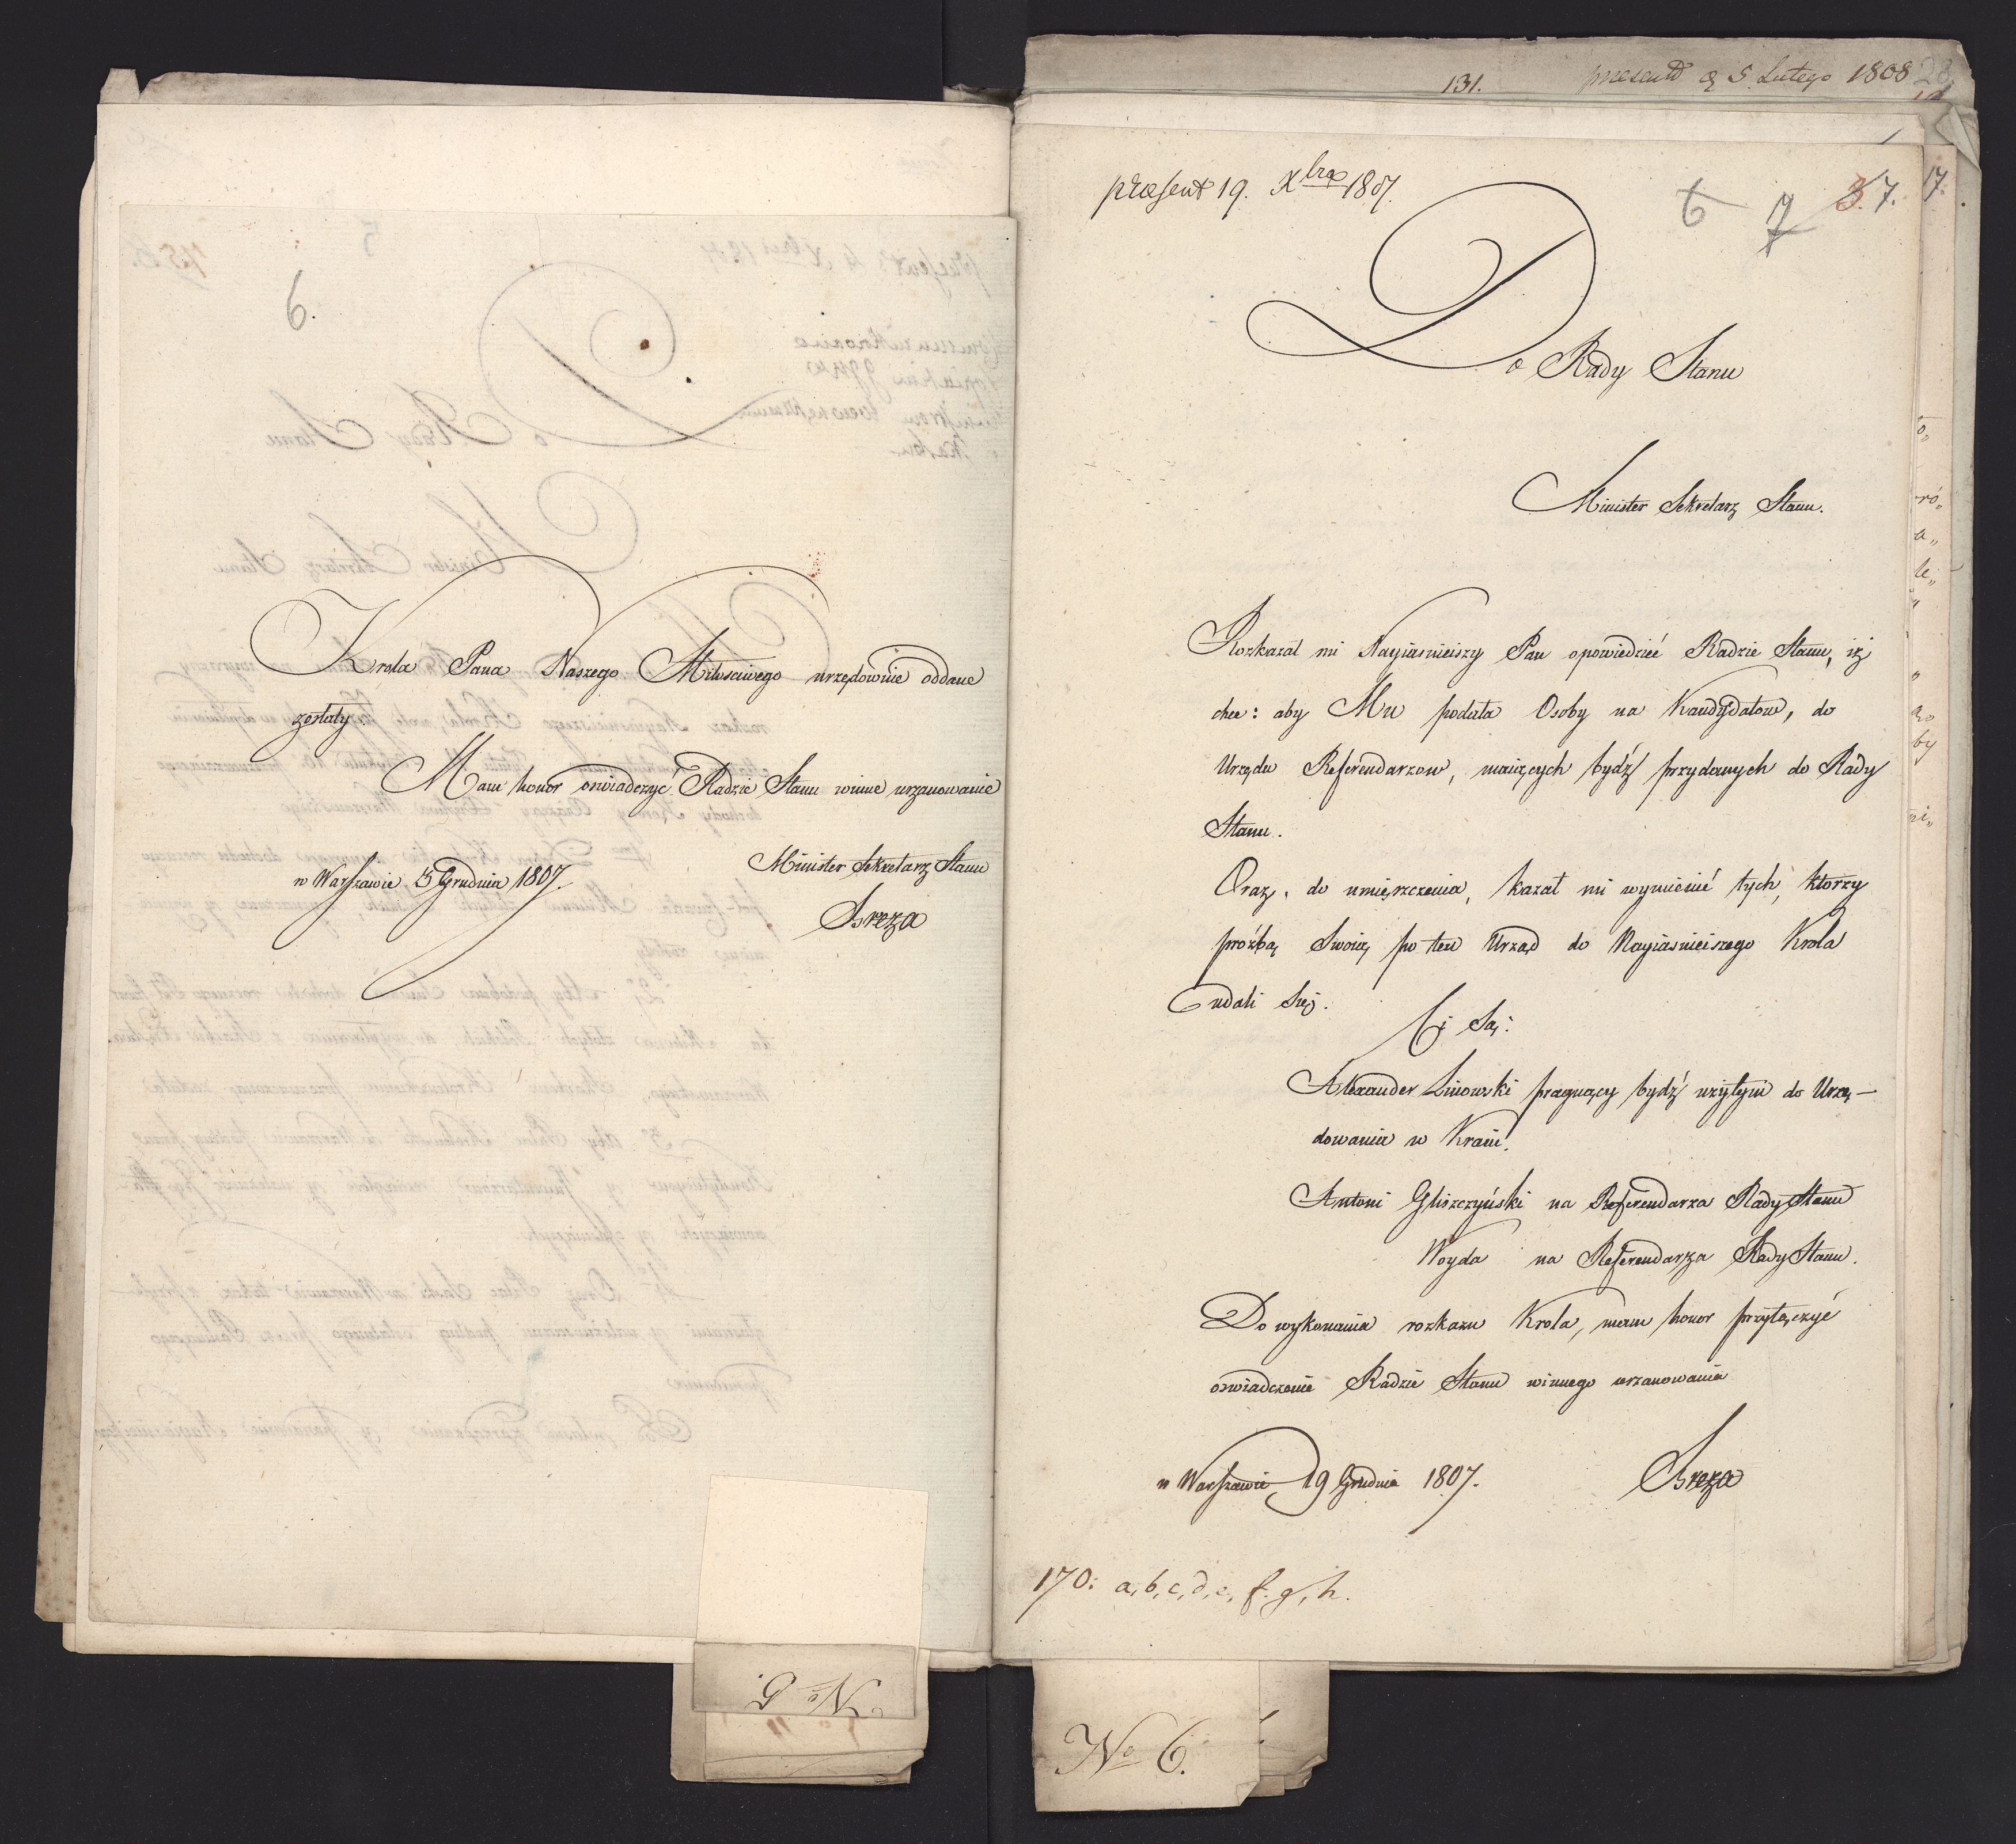 6.
Krola Pana Naszego Miłosciwego urzędownie oddane
zostały
Mam honor oswiadczyć Radzie Stanu winne uszanowanie
Minister Sekretarz Stanu
w Warszawie 5 Grudnia 1807.
Breza
No 5.
131. present d 5 Lutego 1808
præsent 19. Xbra 1807.
6 7 3. 7. 17.
Do Rady Stanu
Minister Sekretarz Stanu.
Rozkazał mi Nayiasnieiszy Pan opowiedzieć Radzie Stanu, iż
chce: aby Mu podała Osoby na Kandydatow, do
Urzędu Referendarzow, maiących bydź przydanych do Rady
Stanu.
Oraz, do umieszczenia, kazał mi wymienić tych, ktorzy
proźbą Swoią po ten Urząd do Nayiasnieiszego Krola
udali Się.
Ci Są:
Alexander Linowski pragnący bydź użytym do Urzę-
dowania w Kraiu.
Antoni Gliszczyński na Referendarza Rady Stanu
Woyda na Referendarza Rady Stanu.
Do wykonania rozkazu Krola, mam honor przyłączyć
oswiadczenie Radzie Stanu winnego uszanowania
w Warszawie 19 Grudnia 1807.
Breza
170: a, b, c, d, e, f. g, h.
No 6.